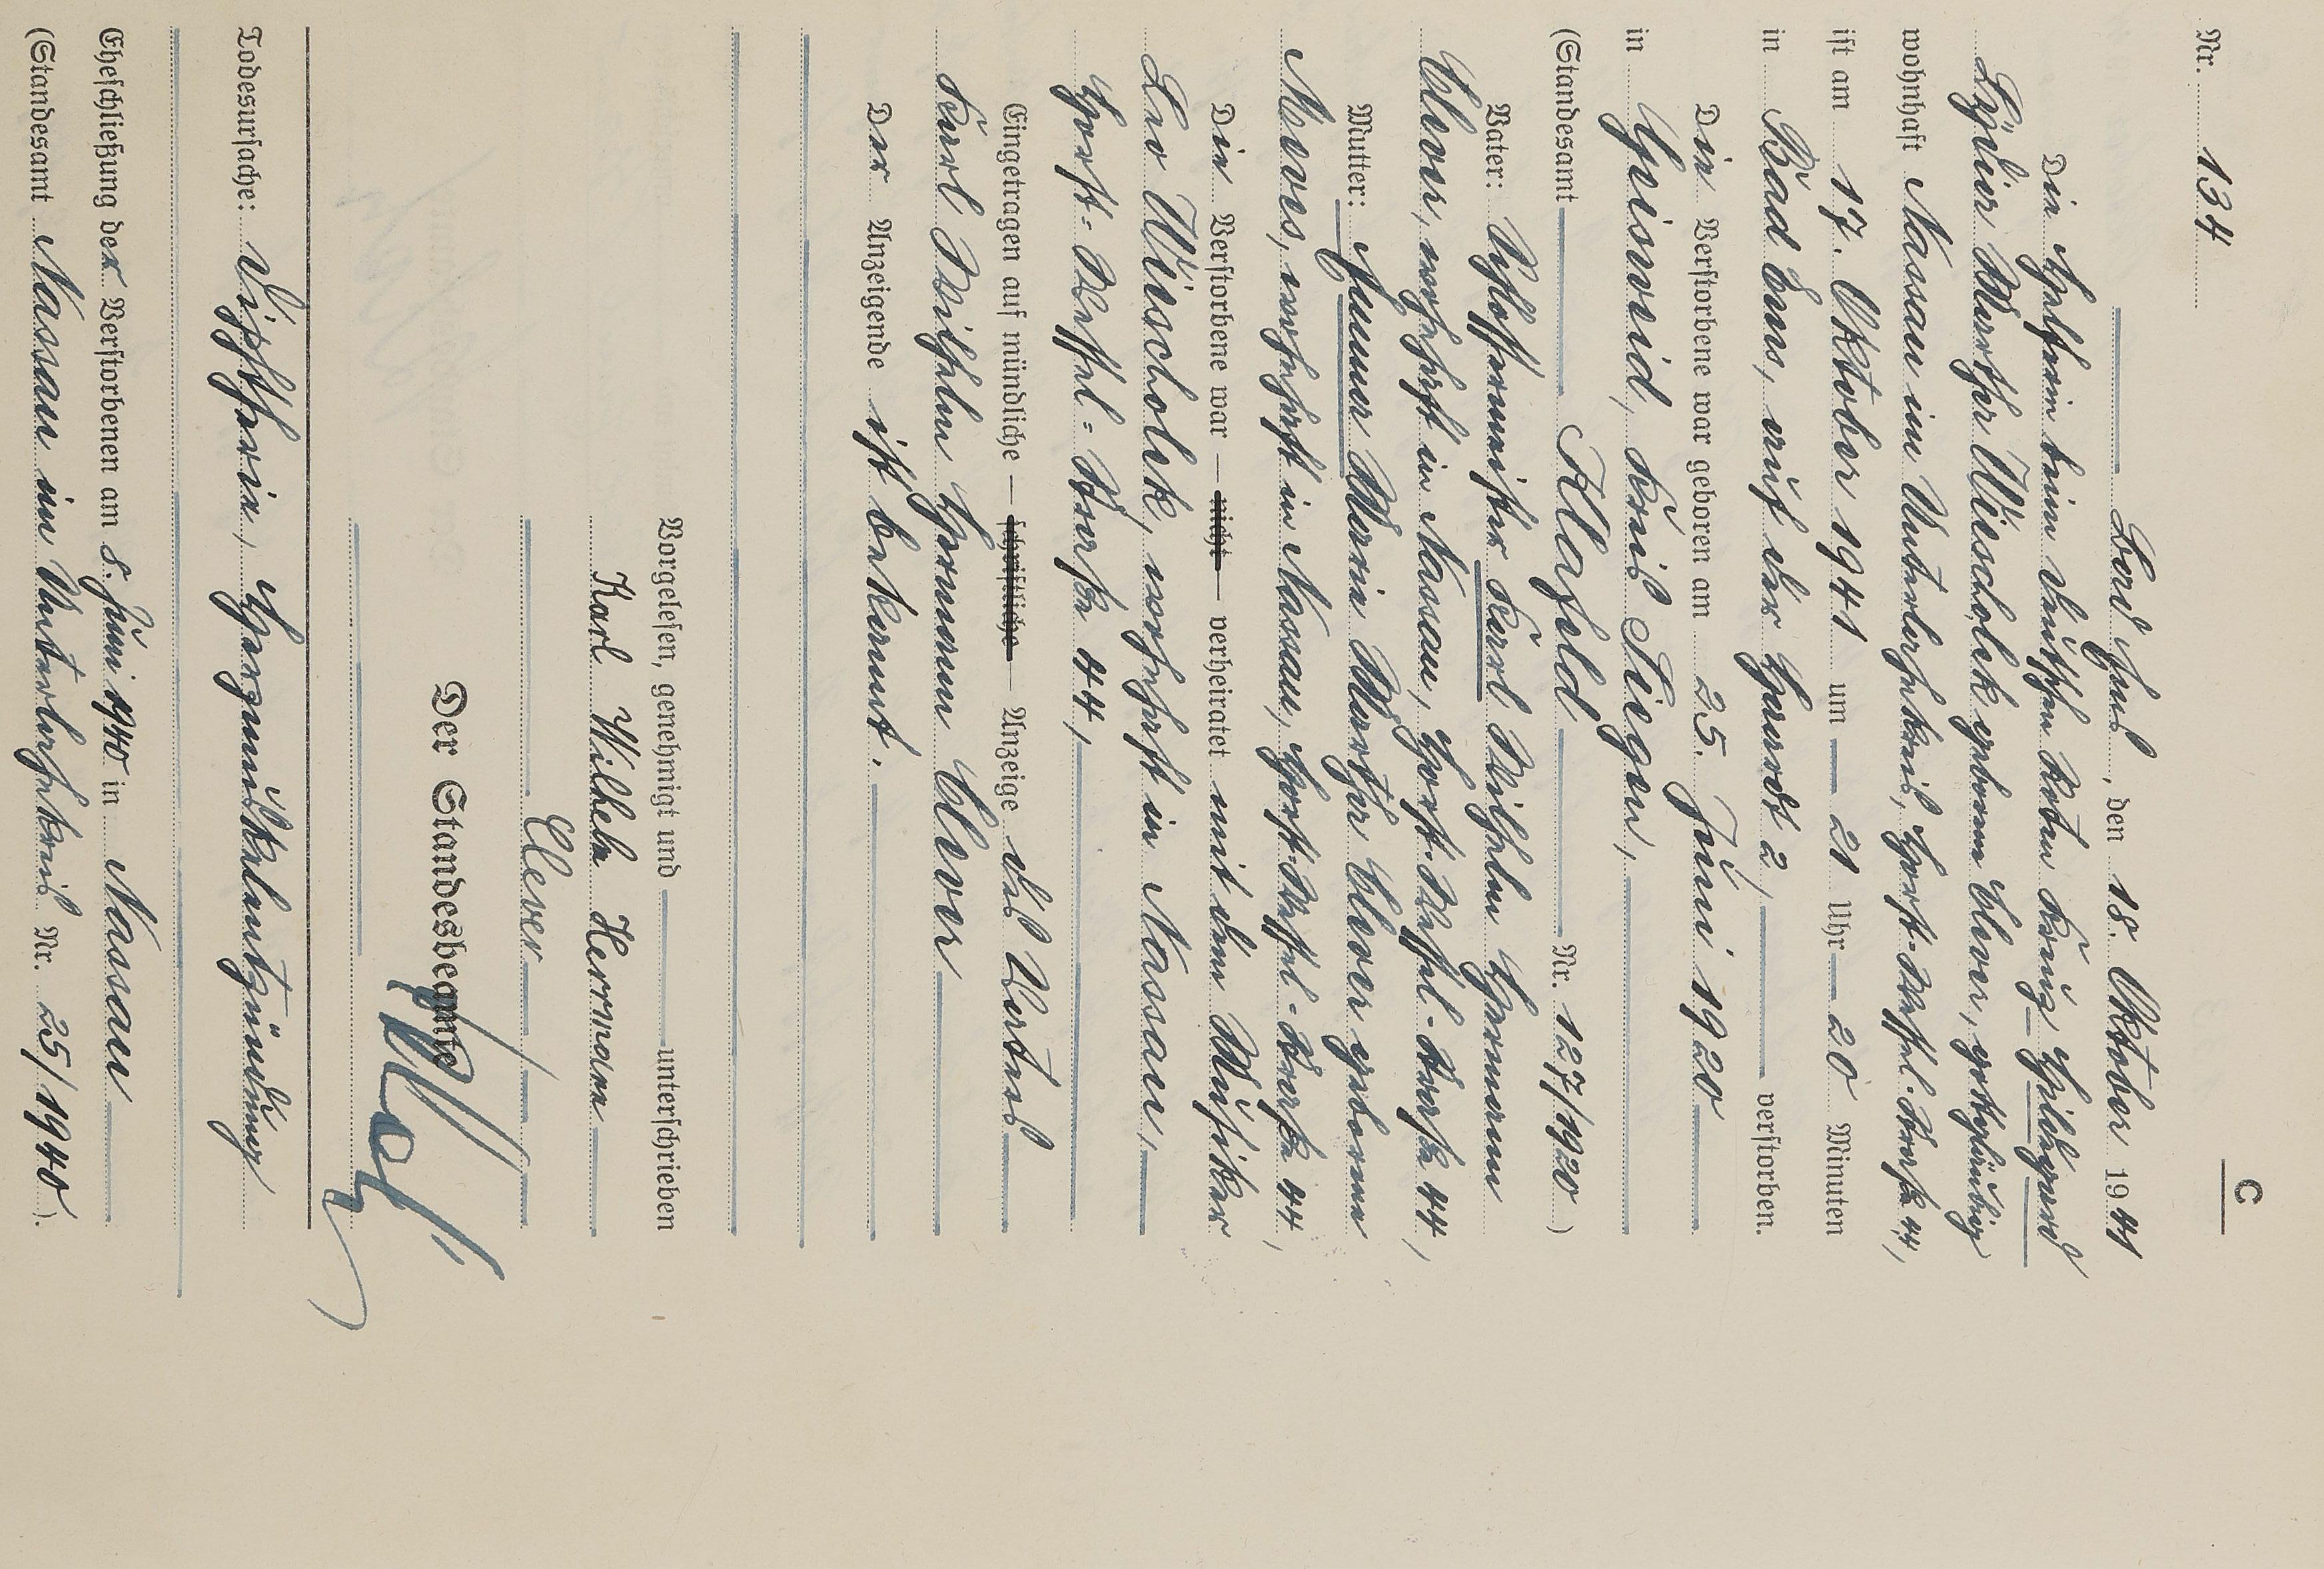 C
Nr. 134
Bad Ems, den 18. Oktober 1941
Die Helferin beim Deutschen Roten Kreuz Hildegard
Lydia Martha Wieschollek geborene Clever, gottgläubig
wohnhaft Nassau im Unterlahnkreis, Horst-Wessel-Straße 44,
ist am 17. Oktober 1941 um 21 Uhr 20 Minuten
in Bad Ems, auf der Haardt 2, verstorben.
Die Verstorbene war geboren am 25. Juni 1920
in Geisweid, Kreis Siegen,
(Standesamt Klafeld Nr. 127/1920)
Vater: Schlossermeister Karl Wilhelm Hermann
Clever, wohnhaft in Nassau, Horst-Wessel-Straße 44,
Mutter: Anna Maria Martha Clever geborene
Mewes, wohnhaft in Nassau, Horst-Wessel-Straße 44,
Die Verstorbene war — nicht — verheiratet mit dem Musiker
Leo Wieschollek, wohnhaft in Nassau,
Horst-Wessel-Straße 44,
Eingetragen auf mündliche — schriftliche — Anzeige des Vaters
Karl Wilhelm Hermann Clever
Der Anzeigende ist bekannt.
Vorgelesen, genehmigt und unterschrieben
Karl Wilhelm Hermann
Clever
Der Standesbeamte
Todesursache: Diphtherie, Herzmuskelentzündung
Eheschließung der Verstorbenen am 8. Juni 1940 in Nassau
(Standesamt Nassau im Unterlahnkreis Nr. 25/1940).